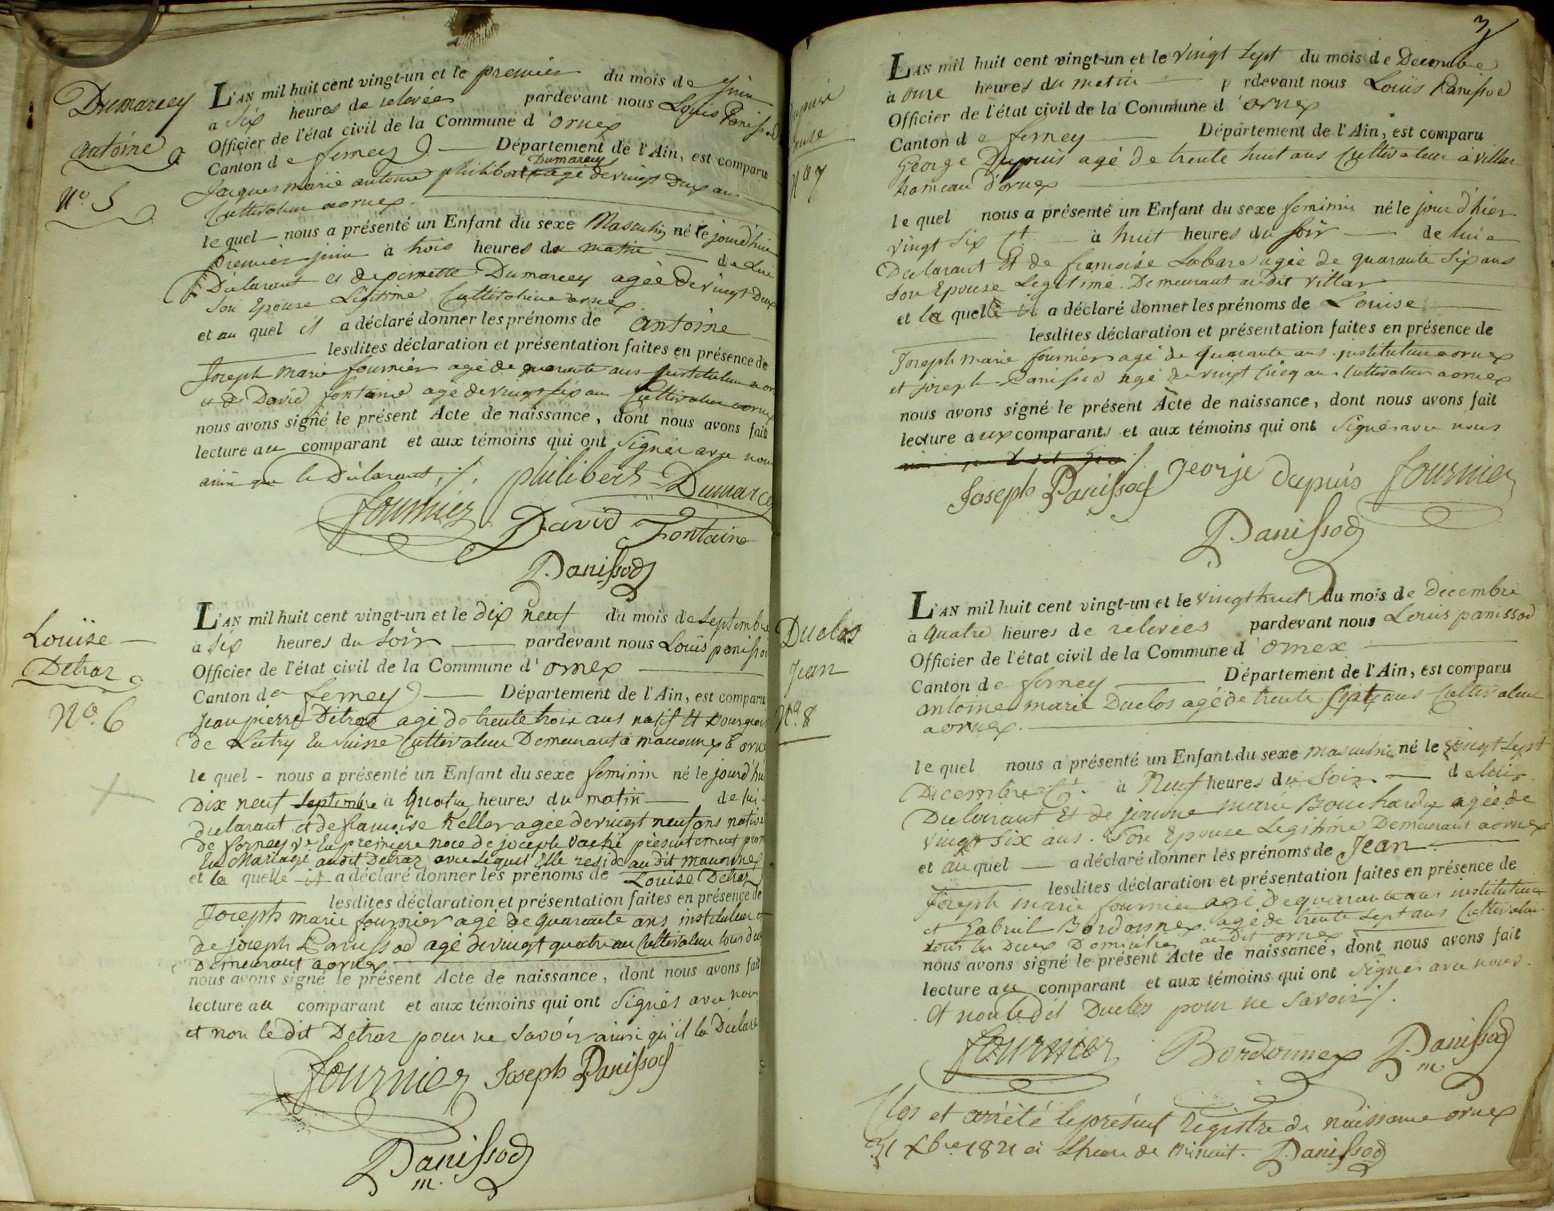 Dumarcey
antoine
N.º 5
L'AN mil huit cent vingt-un et le premier du mois de juin
à six heures de relevées pardevant nous Louis Panissod
Officier de l'état civil de la Commune d'ornex
Canton de ferney Département de l'Ain, est comparu
Jacques marie antoine philibert Dumarcey agé de vingt Deux ans
Cultivateur a ornex.
le quel nous a présenté un Enfant du sexe Masculin né le jourd'hui
premier juin à trois heures du matin de Lui
Déclarant et de pernette Dumarcey agée de vingt Deux
Son Epouse Légitime Cultivatrice a ornex
et au quel il a déclaré donner les prénoms de antoine
lesdites déclaration et présentation faites en présence de
Joseph marie fournier agé de quarante ans instituteur a ornex
et de David fontaine agé de vingt six ans Cultivateur a ornex
nous avons signé le présent Acte de naissance, dont nous avons fait
lecture au comparant et aux témoins qui ont Signés avec nous
ainsi que le Déclarant ./.
philibert Dumarcey
fournier David Fontaine
Panissod
Louise
Detraz
N.º 6
L'AN mil huit cent vingt-un et le dix neuf du mois de septembre
à six heures du soir pardevant nous Louis panissod
Officier de l'état civil de la Commune d'ornex
Canton de ferney Département de l'Ain, est comparu
Jean pierre Detraz agé de trente trois ans natif et Bourgeois
de Lutry En Suisse Cultivateur Demeurant a maconnex d'ornex
le quel - nous a présenté un Enfant du sexe feminin né le jourd'hui
Dix neuf septembre à Quatre heures du matin de lui
declarant et de francoise Keller agée de vingt neuf ans native
de Vorney Ve En premiere noce de joseph Vachie presentement
En Mariage audit Detraz avec Lequel Elle reside au dit maconnex
et la quelle il a déclaré donner les prénoms de Louise Detraz
lesdites déclaration et présentation faites en présence de
Joseph marie fournier agé de quarante ans instituteur et
de joseph Panissod agé de vingt quatre ans Cultivateur tous deux
Demeurant a ornex
nous avons signé le présent Acte de naissance, dont nous avons fait
lecture au comparant et aux témoins qui ont Signés avec nous
et non le dit Detraz pour ne savoir ainsi qu'il la Déclaré
fournier Joseph Panissod
Panissod
m.
3
N.º 7
L'AN mil huit cent vingt-un et le vingt sept du mois de Decembre
à onze heures du matin pardevant nous Louis Panissod
Officier de l'état civil de la Commune d'ornex
Canton de ferney Département de l'Ain, est comparu
George Dupuis agé de trente huit ans Cultivateur a villar
hameau d'ornex
le quel nous a présenté un Enfant du sexe feminin né le jour d'hier
vingt six Ct à huit heures du soir de lui
Declarant Et de francoise Labare agée de quarante six ans
Son Epouse Legitime Demeurant audit villar
et la quelle il a déclaré donner les prénoms de Louise
lesdites déclaration et présentation faites en présence de
Joseph marie fournier agé de quarante ans instituteur a ornex
et joseph Panissod agé de vingt cinq ans Cultivateur a ornex
nous avons signé le présent Acte de naissance, dont nous avons fait
lecture aux comparants et aux témoins qui ont Signés avec nous
Joseph Panissod george dupuis fournier
Panissod
Duclos
Jean
N.º 8
L'AN mil huit cent vingt-un et le vingt huit du mois de décembre
à Quatre heures de relevées pardevant nous Louis panissod
Officier de l'état civil de la Commune d'ornex
Canton de ferney Département de l'Ain, est comparu
antoine marie Duclos agé de trente sept ans Cultivateur
a ornex.
le quel nous a présenté un Enfant du sexe masculin né le vingt sept
Decembre Ct. à Neuf heures du soir de lui
Declarant Et de jeanne marie Bouchardy agée de
vingt six ans. Son Epouse Legitime Demeurant a ornex
et au quel a déclaré donner les prénoms de Jean
lesdites déclaration et présentation faites en présence de
Joseph marie fournier agé de quarante ans instituteur
et Gabriel Bordonnex agé de trente sept ans Cultivateur
tous les Deux Domiciliés audit ornex
nous avons signé le présent Acte de naissance, dont nous avons fait
lecture au comparant et aux témoins qui ont Signés avec nous.
Et non ledit Duclos pour ne savoir ./.
fournier Bordonnex Panissod
m.
Clos et arrété le présent Registre de naissance ornex
31 Xbre 1821 à Lheure de Minuit. Panissod